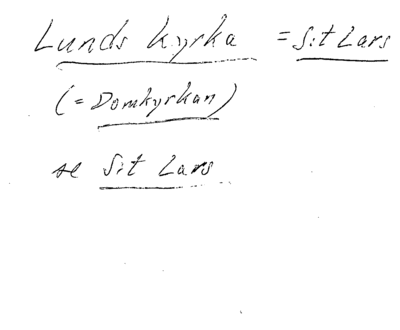 Lunds kyrka = S:t Lars
(= Domkyrkan)
se S:t Lars